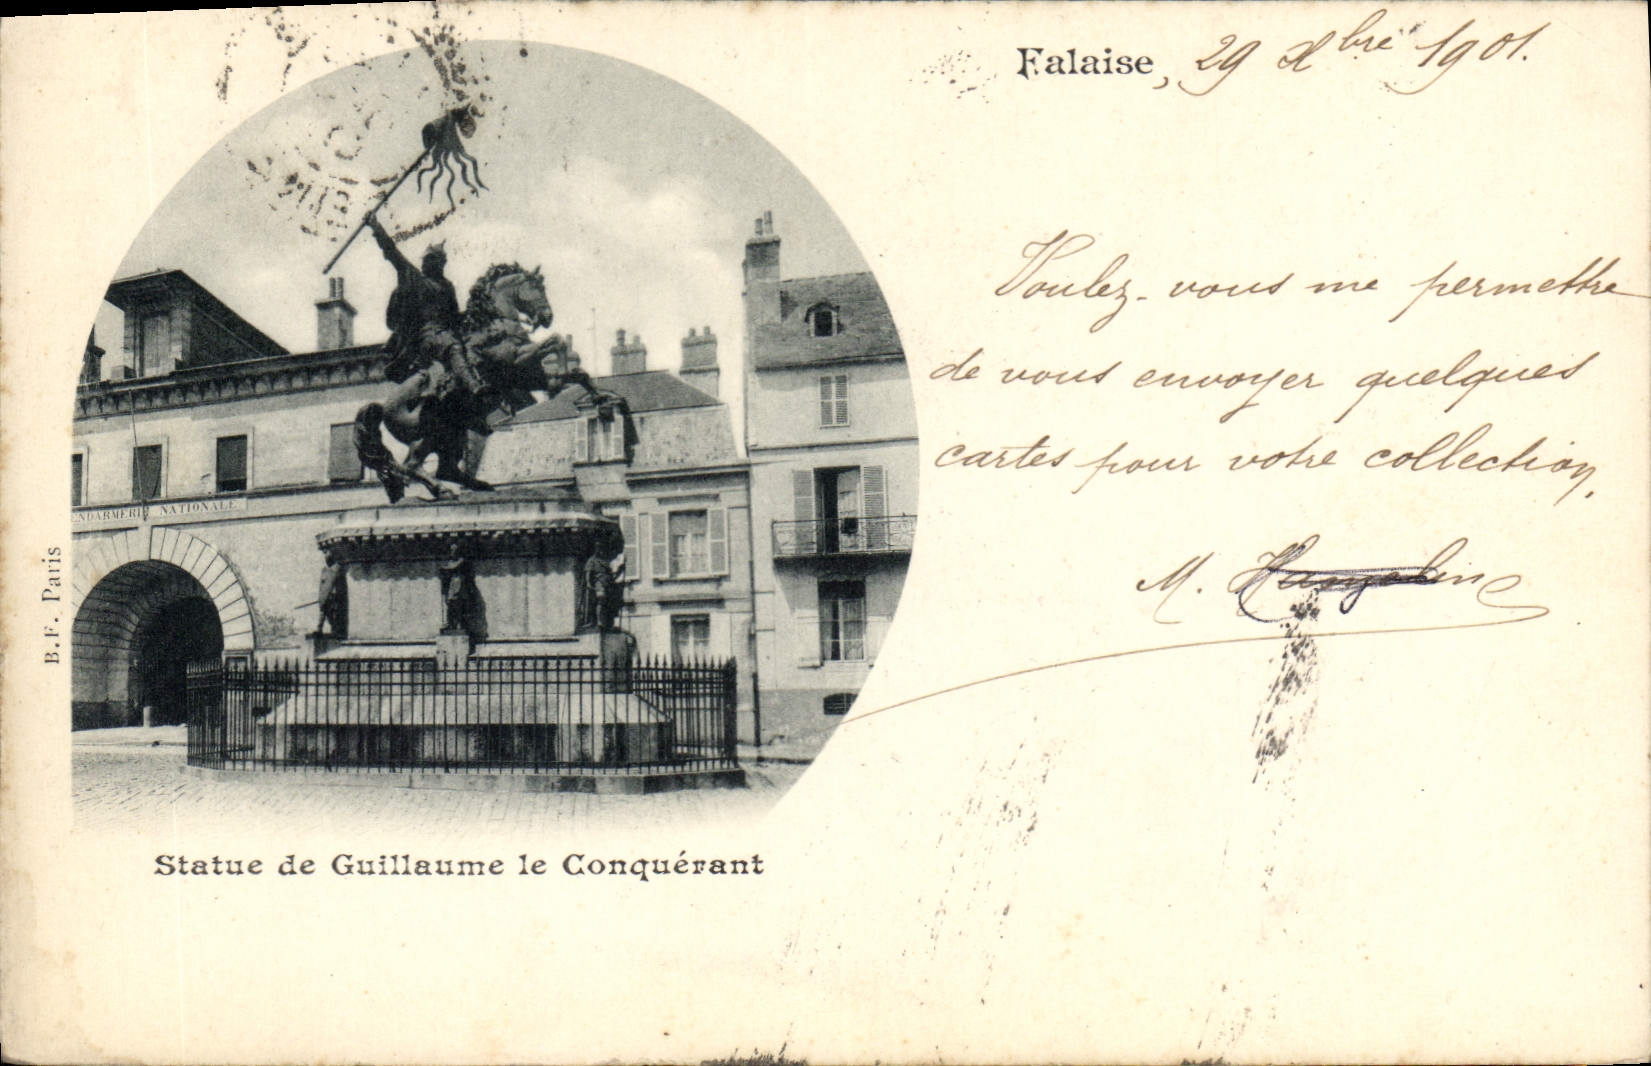 Falaise, 29 Xbre 1901.
Voulez-vous me permettre
de vous envoyer quelques
cartes pour votre collection,
M.
ENDARMERIE NATIONALE
B.F. Paris
Statue de Guillaume le Conquérant